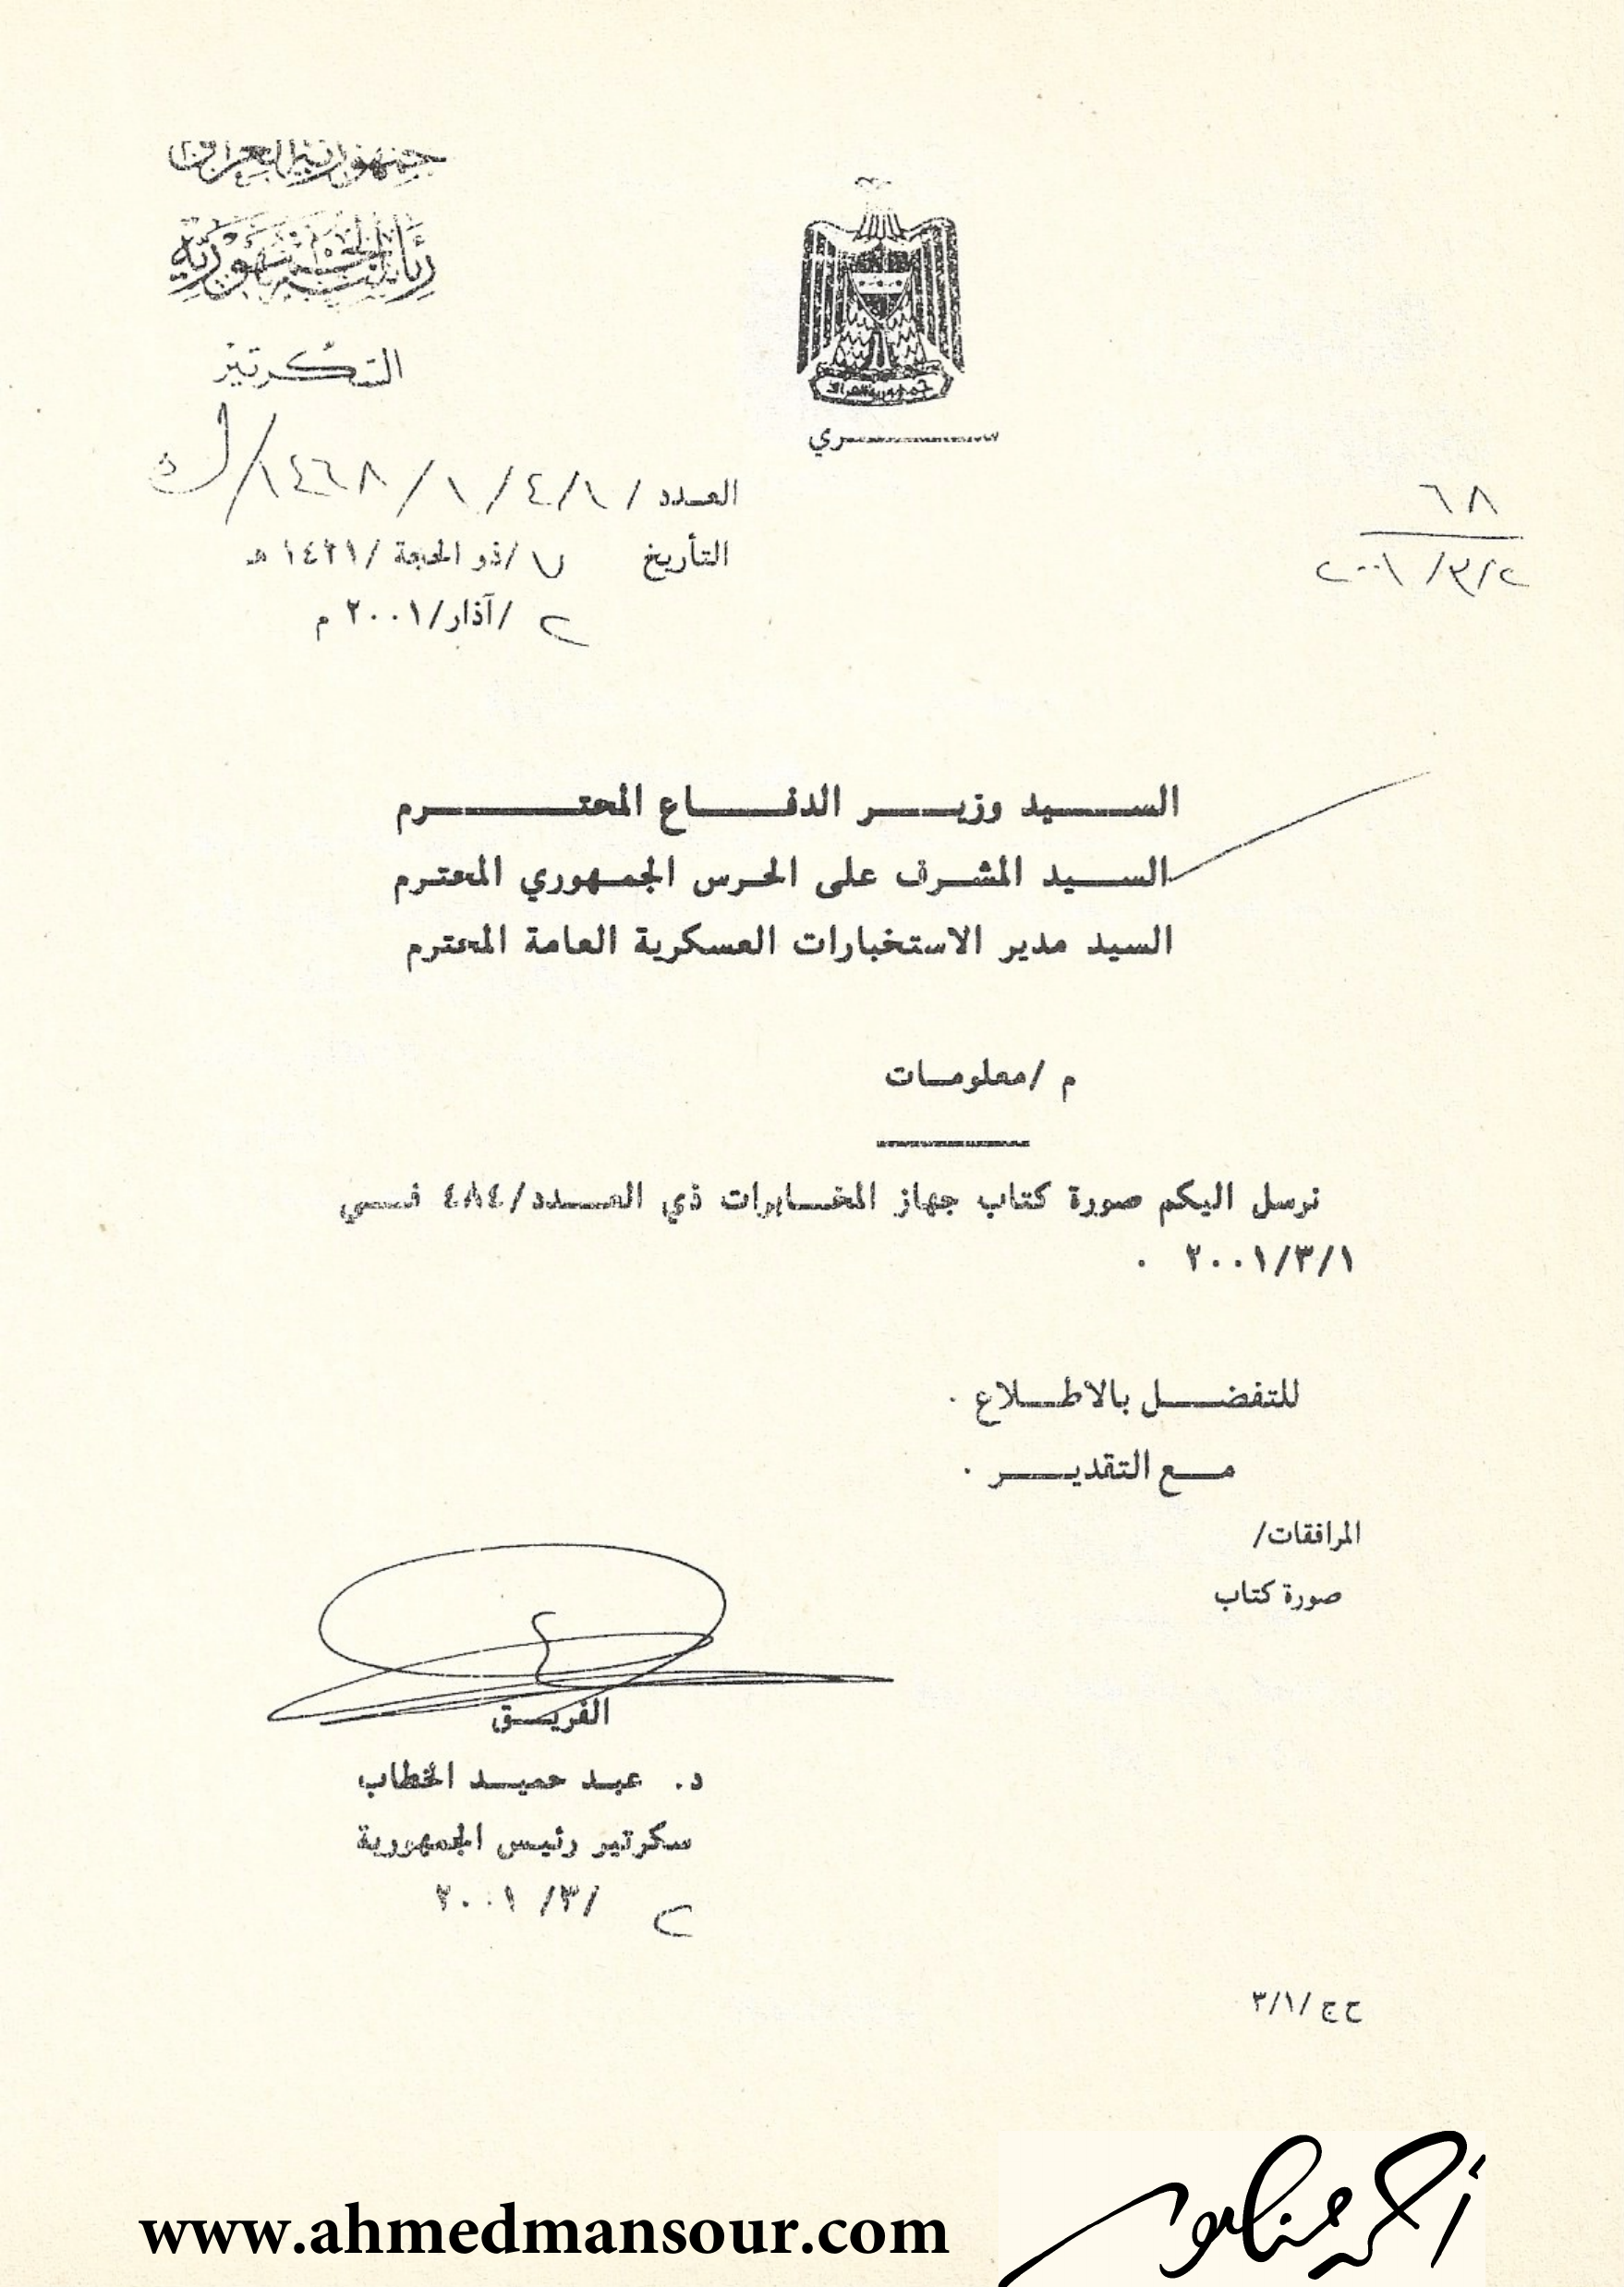 جمهورية العراق
رئاسة الجمهورية
السكرتير
جمهورية العراق
ســـــري
العدد / ١/٤/١/ ١٤٦٨/ك
التأريخ ٧ /ذو الحجة /١٤٢١ هـ
٢ /آذار/٢٠٠١ م
٦٨
٢/٣/٢٠٠١
الســـيد وزيـــر الدفـــاع المحتـــــرم
الســـيد المشـــرف على الحـرس الجمـهوري المحتـرم
السيد مدير الاستخبارات العسكرية العامة المحترم
م /معلومـات
نرسل اليكم صورة كتاب جهاز المخـــابرات ذي العـــدد/٤٨٤ فـــي
٢٠٠١/٣/١ .
للتفضـــل بالاطـــلاع .
مـــع التقديـــــر .
المرافقات/
صورة كتاب
الفريـــق
د. عبـد حميـــد الخطاب
سكرتير رئيس الجمهورية
٢ /٣/ ٢٠٠١
ح ج /٣/١
www.ahmedmansour.com
أحمد منصور